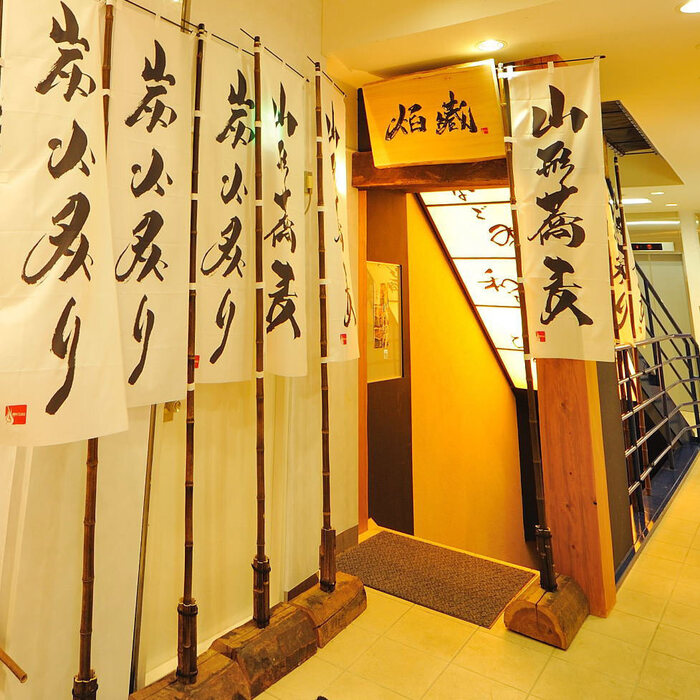 炭火炙り
炭火炙り
炭火炙り
山形蕎麦
焔藏
山形蕎麦